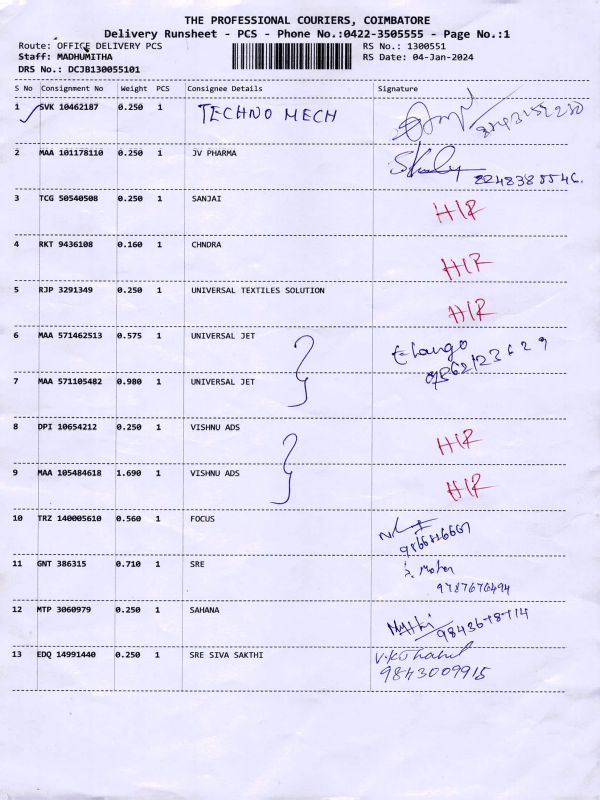 THE PROFESSIONAL COURIERS, COIMBATORE
Delivery Runsheet - PCS - Phone No.:0422-3505555 - Page No.:1
Route: OFFICE DELIVERY PCS RS No.: 1300551
Staff: MADHUMITHA RS Date: 04-Jan-2024
DRS No.: DCJB130055101
S No Consignment No Weight PCS Consignee Details Signature
1 SVK 10462187 0.250 1 TECHNO MECH
2 MAA 101178110 0.250 1 JV PHARMA
3 TCG 50540508 0.250 1 SANJAI HIR
4 RKT 9436108 0.160 1 CHNDRA HIR
5 RJP 3291349 0.250 1 UNIVERSAL TEXTILES SOLUTION HIR
6 MAA 571462513 0.575 1 UNIVERSAL JET Elango
7 MAA 571105482 0.980 1 UNIVERSAL JET
8 DPI 10654212 0.250 1 VISHNU ADS HIR
9 MAA 105484618 1.690 1 VISHNU ADS HIR
10 TRZ 140005610 0.560 1 FOCUS
11 GNT 386315 0.710 1 SRE
9787676494
12 MTP 3060979 0.250 1 SAHANA
13 EDQ 14991440 0.250 1 SRE SIVA SAKTHI
9843009915